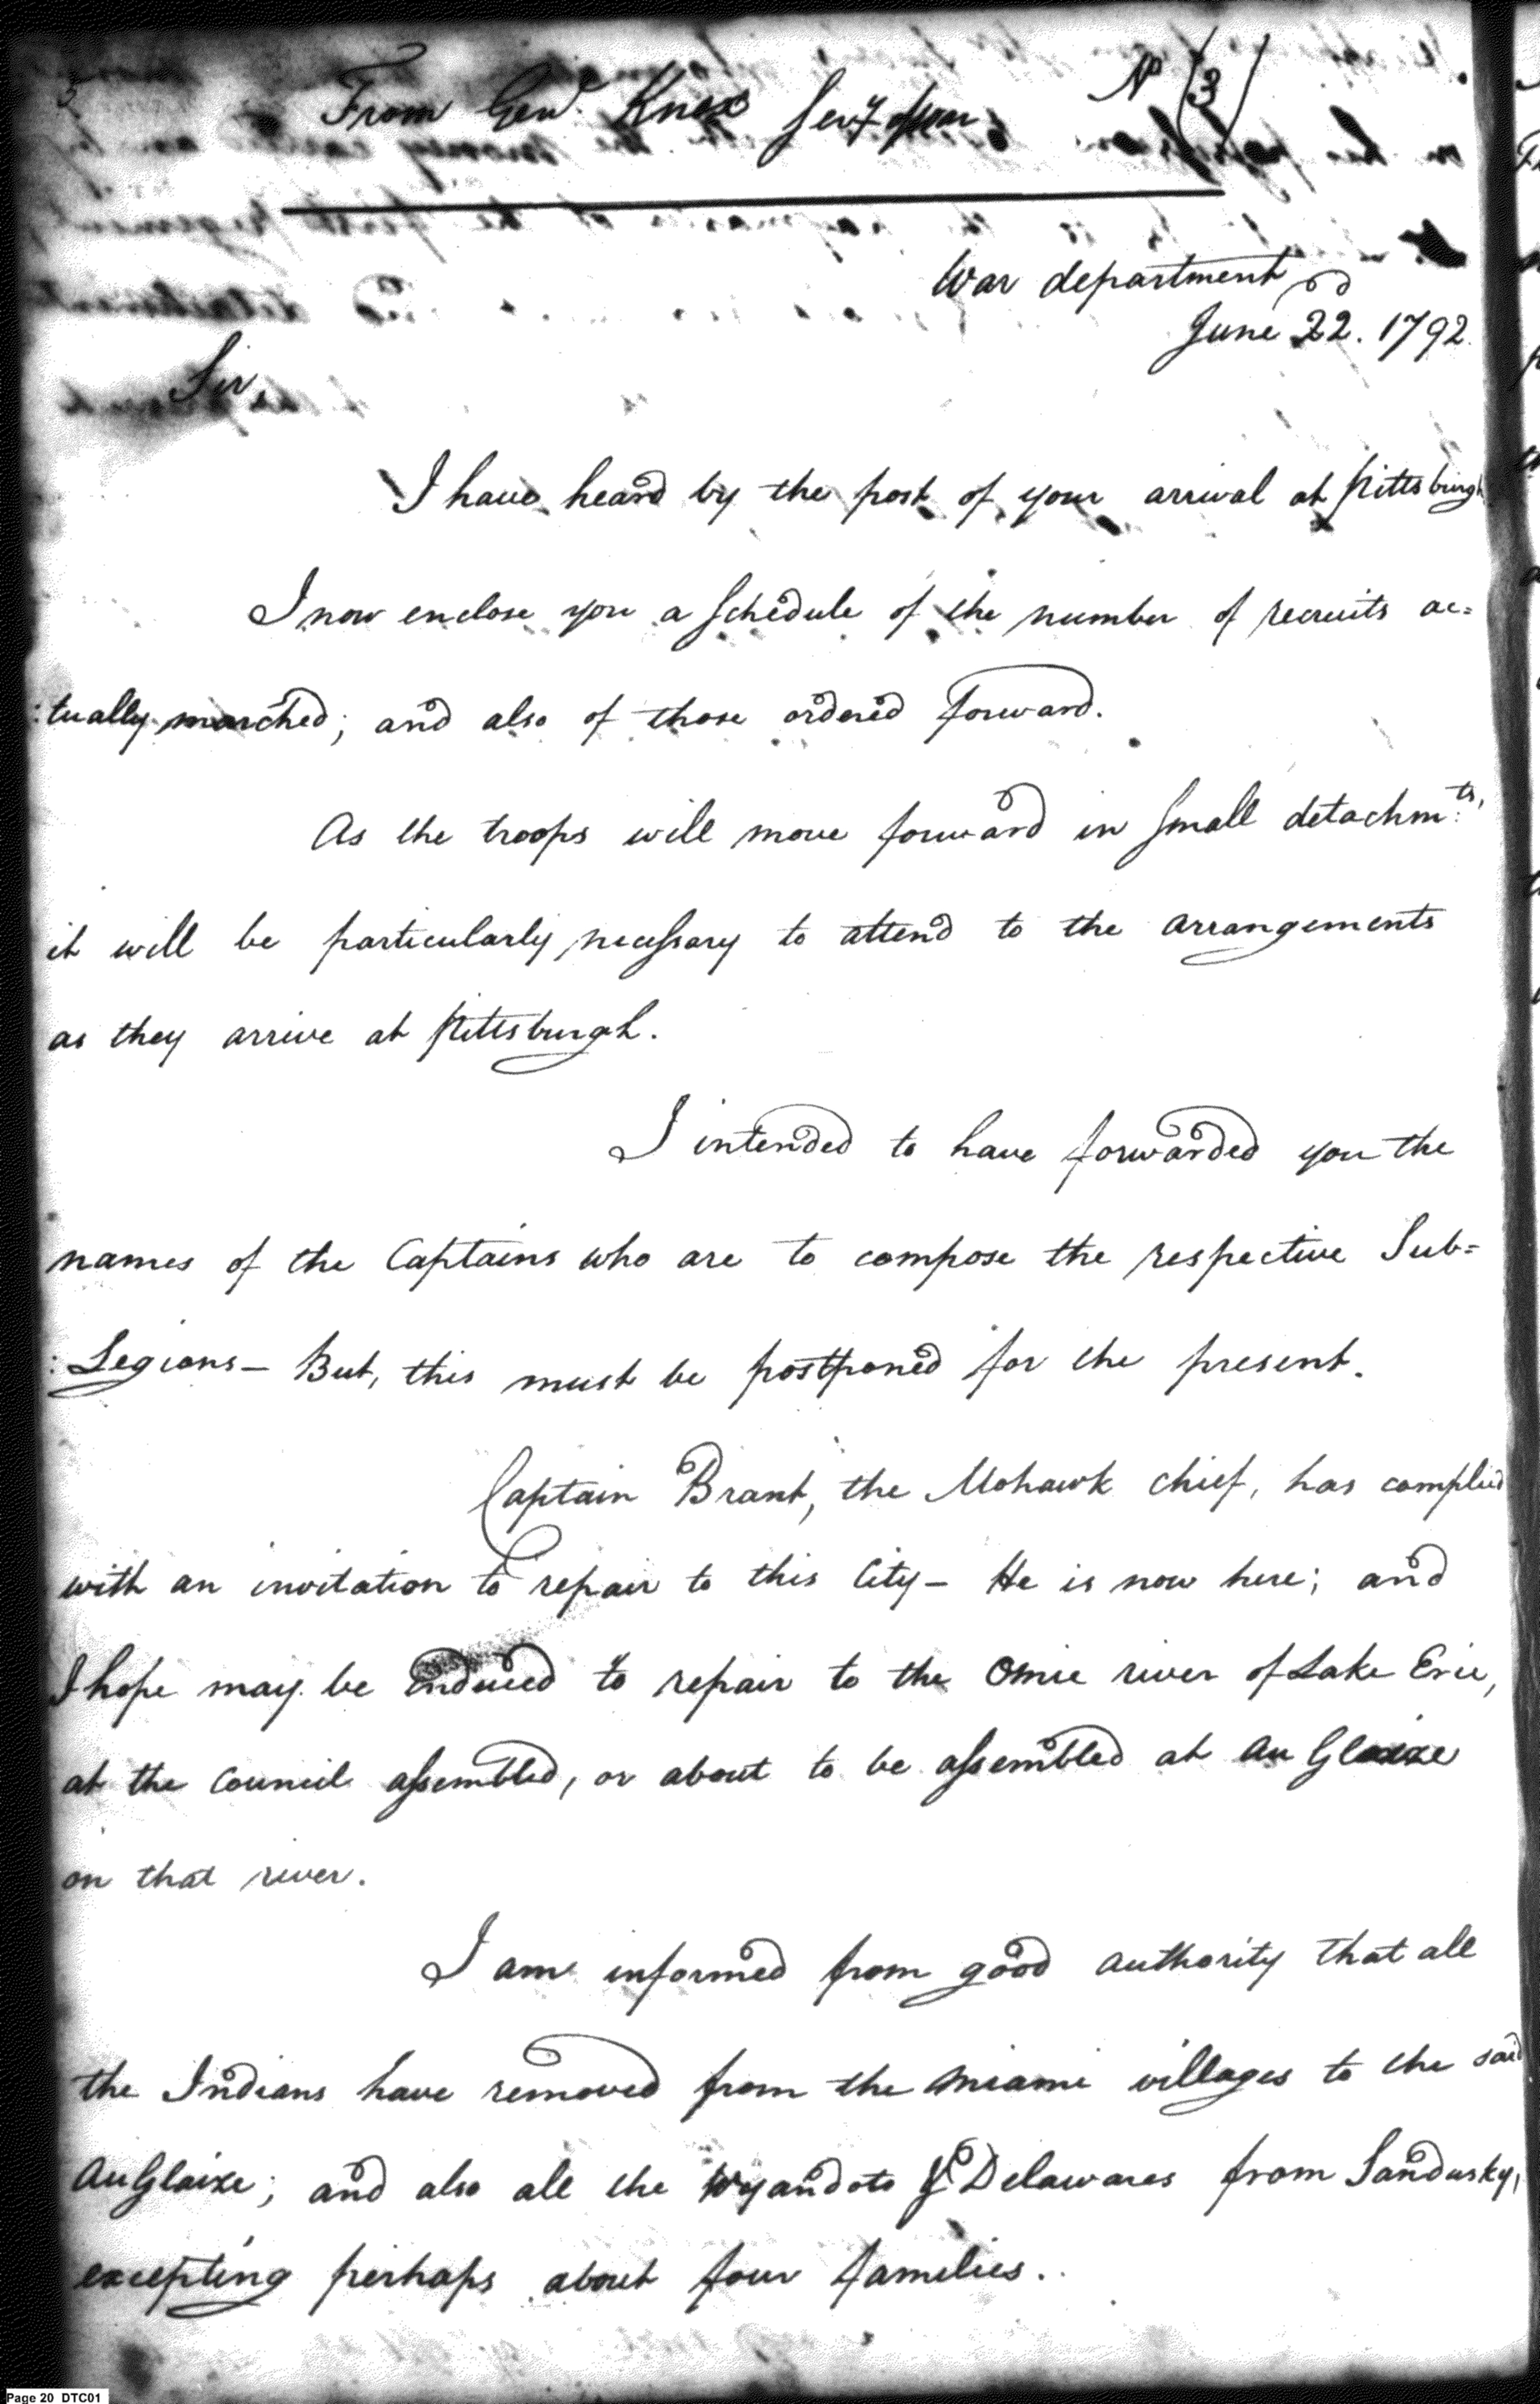 From Genl. Knox Secy of War No (3)
War department
June 22d. 1792.
Sir,
I have heard by the post of your arrival at Pittsburgh
I now enclose you a Schedule of the number of recruits ac=
:tually marched; and also of those ordered forward.
As the troops will move forward in small detachm:ts,
it will be particularly necessary to attend to the arrangements
as they arrive at Pittsburgh.
I intended to have forwarded you the
names of the Captains who are to compose the respective Sub=
:Legions— But, this must be postponed for the present.
Captain Brant, the Mohawk chief, has complied
with an invitation to repair to this City— He is now here; and
I hope may be enduced to repair to the Omie river of Lake Erie,
at the Council assembled, or about to be assembled at Au Glaize
on that river.
I am informed from good authority that all
the Indians have removed from the Miami villages to the said
Au Glaize; and also all the Wyandots & Delawares from Sandusky,
excepting perhaps about four families.
Page 20 DTC01